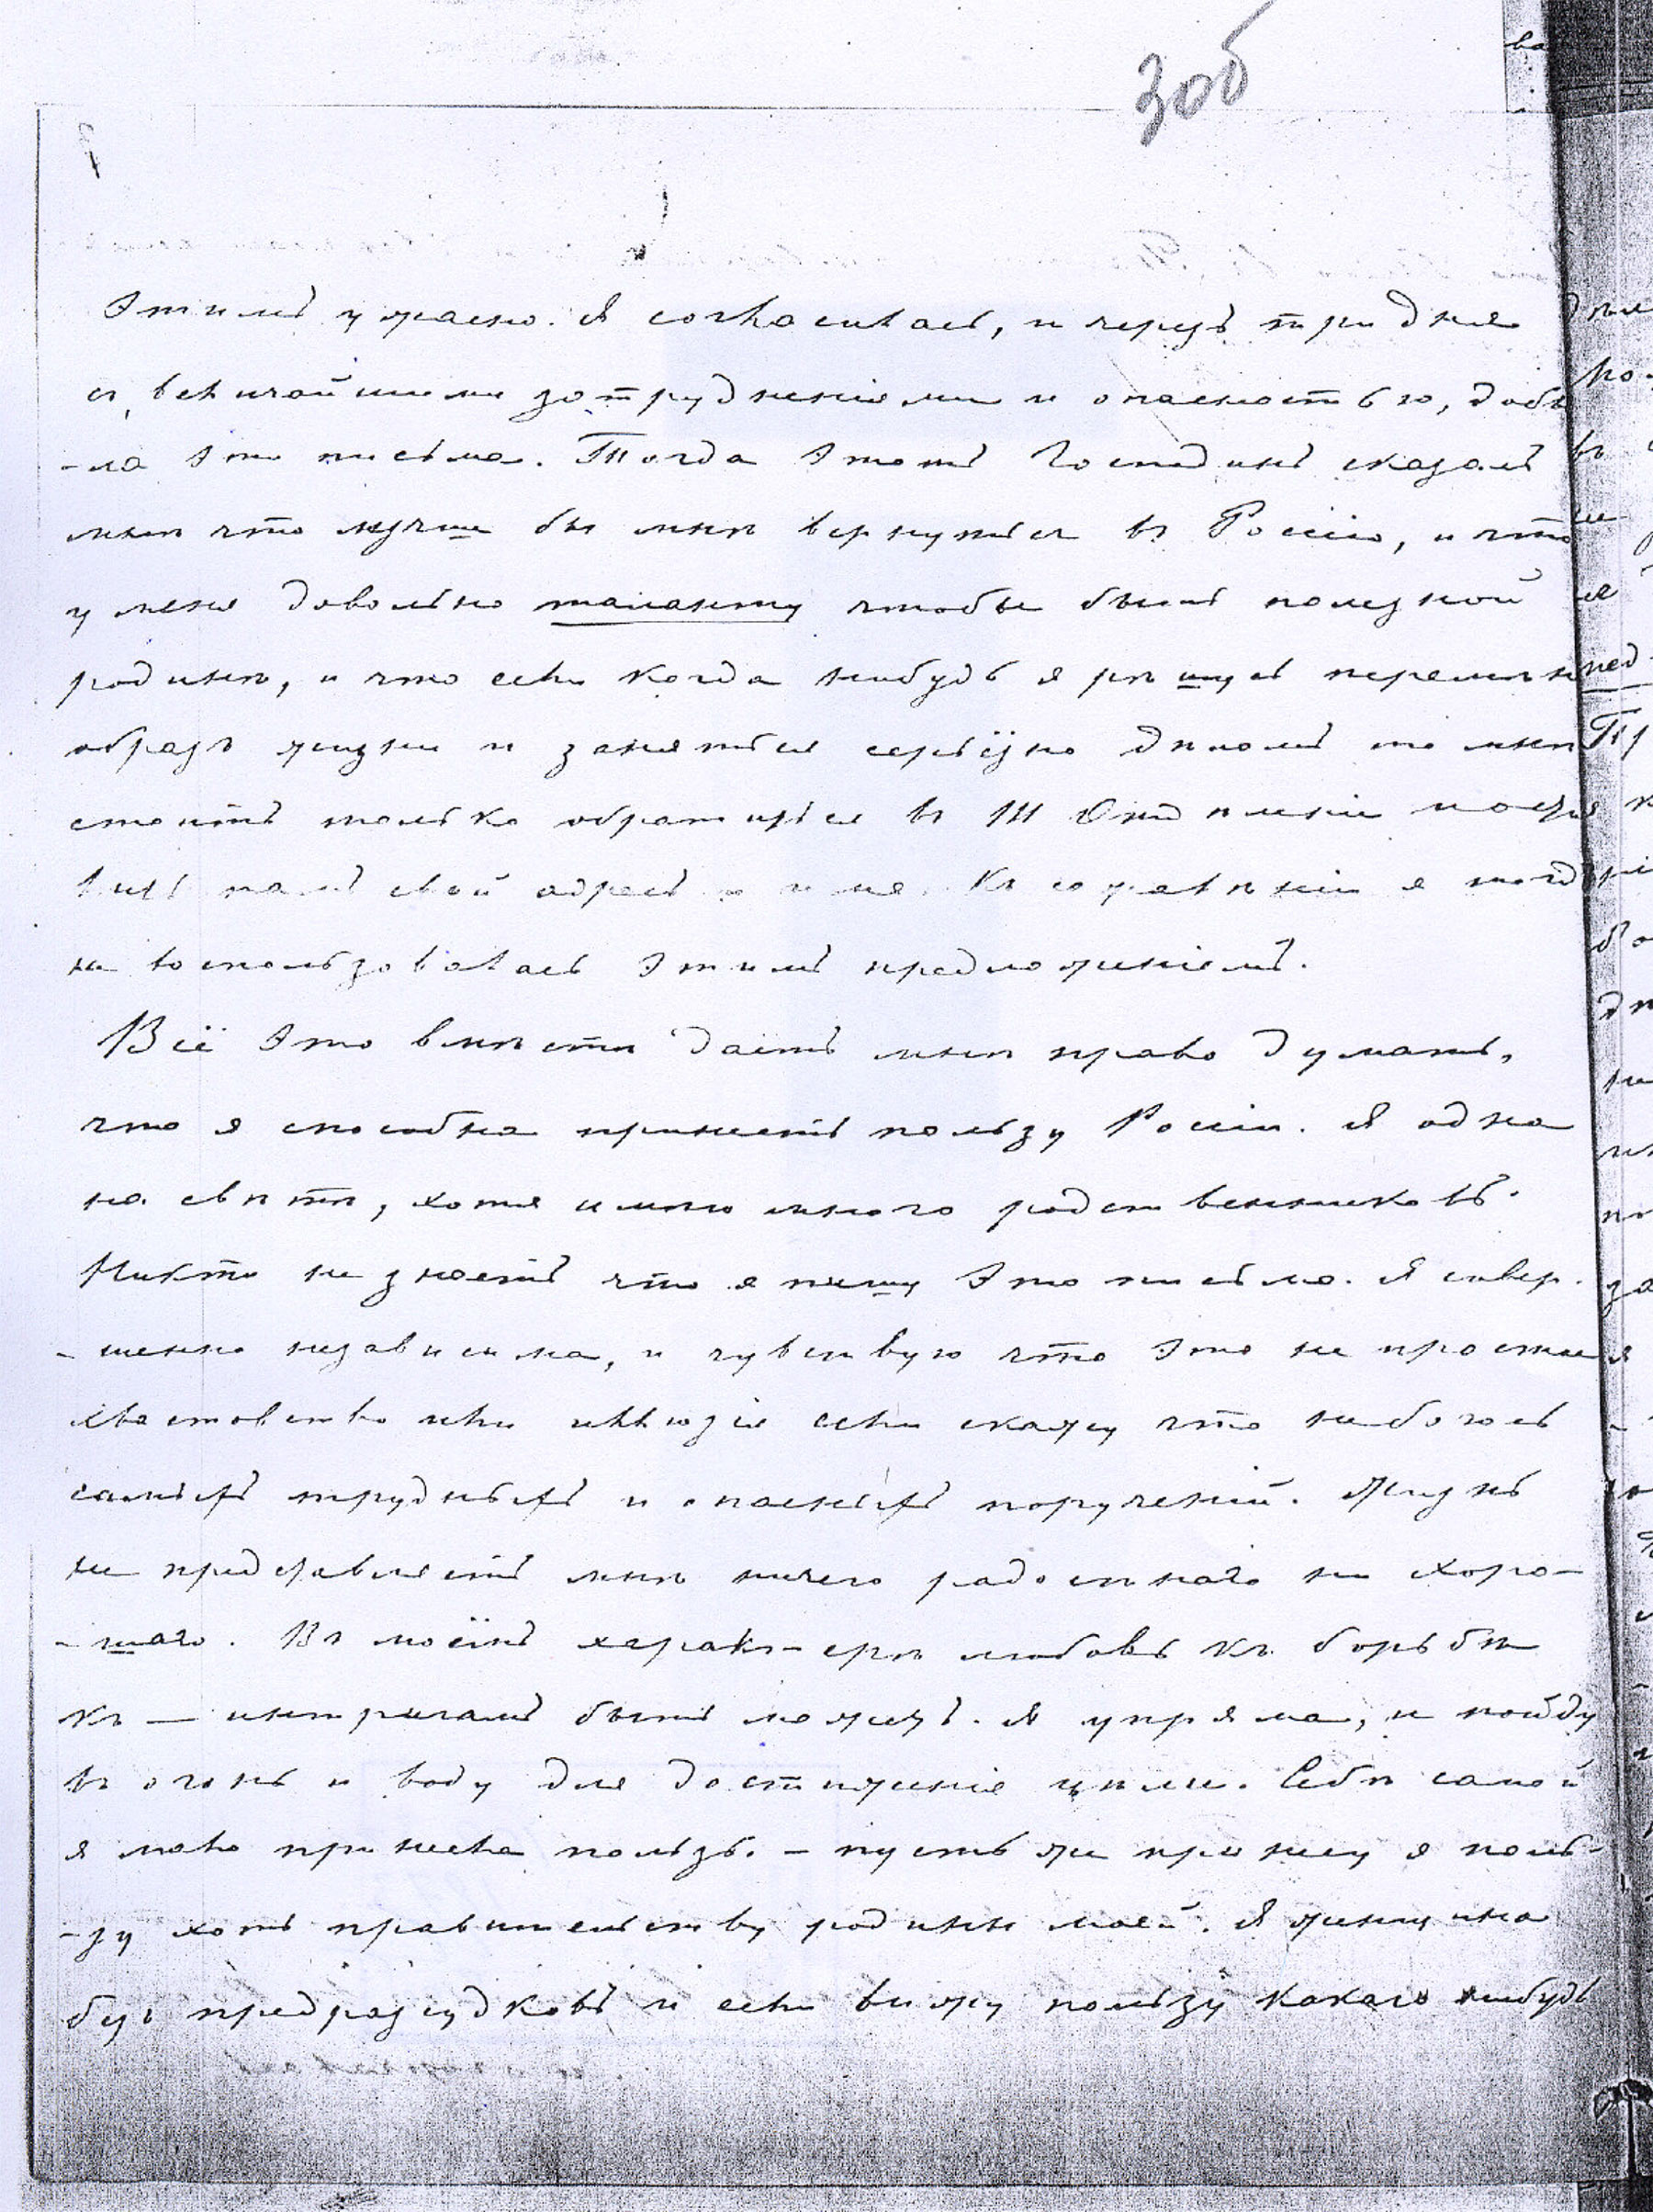 30б
Этимъ ужасно. Я согласилась, и черезъ три дня
съ величайшими затрудненіями и опасностью, добы
-ла это письмо. Тогда этотъ Господинъ сказалъ
мнѣ что лучше бы мнѣ вернуться въ Россію, и что
у меня довольно таланту чтобы быть полезной
родинѣ, и что если когда нибудь я рѣшусь перемѣн
образъ жизни и заняться серьёзно дѣломъ то мнѣ
стоитъ только обратиться въ III Отдѣленіи и оста
вить тамъ свой адресъ и имя. Къ сожалѣнію я тогда
не воспользовалась этимъ предложеніемъ.
Всё это вмѣстѣ даётъ мнѣ право думать,
что я способна принесть пользу Россіи. Я одна
на свѣтѣ, хотя имѣю много родственниковъ.
Никто не знаетъ что я пишу это письмо. Я совер-
-шенно независима, и чувствую что это не простое
хвастовство или иллюзія если скажу что не боюсь
самыхъ трудныхъ и опасныхъ порученій. Жизнь
не представляетъ мнѣ ничего радостнаго ни хоро-
-шаго. Въ моёмъ характерѣ любовь къ борьбѣ
къ — интригамъ быть можетъ. Я упряма, и пойду
въ огонь и воду для достиженія цѣли. Себѣ самой
я мало принесла пользы. – пусть же принесу я поль-
-зу хоть правительству родины моей. Я женщина
безъ предразсудковъ и если вижу пользу какаго нибудь